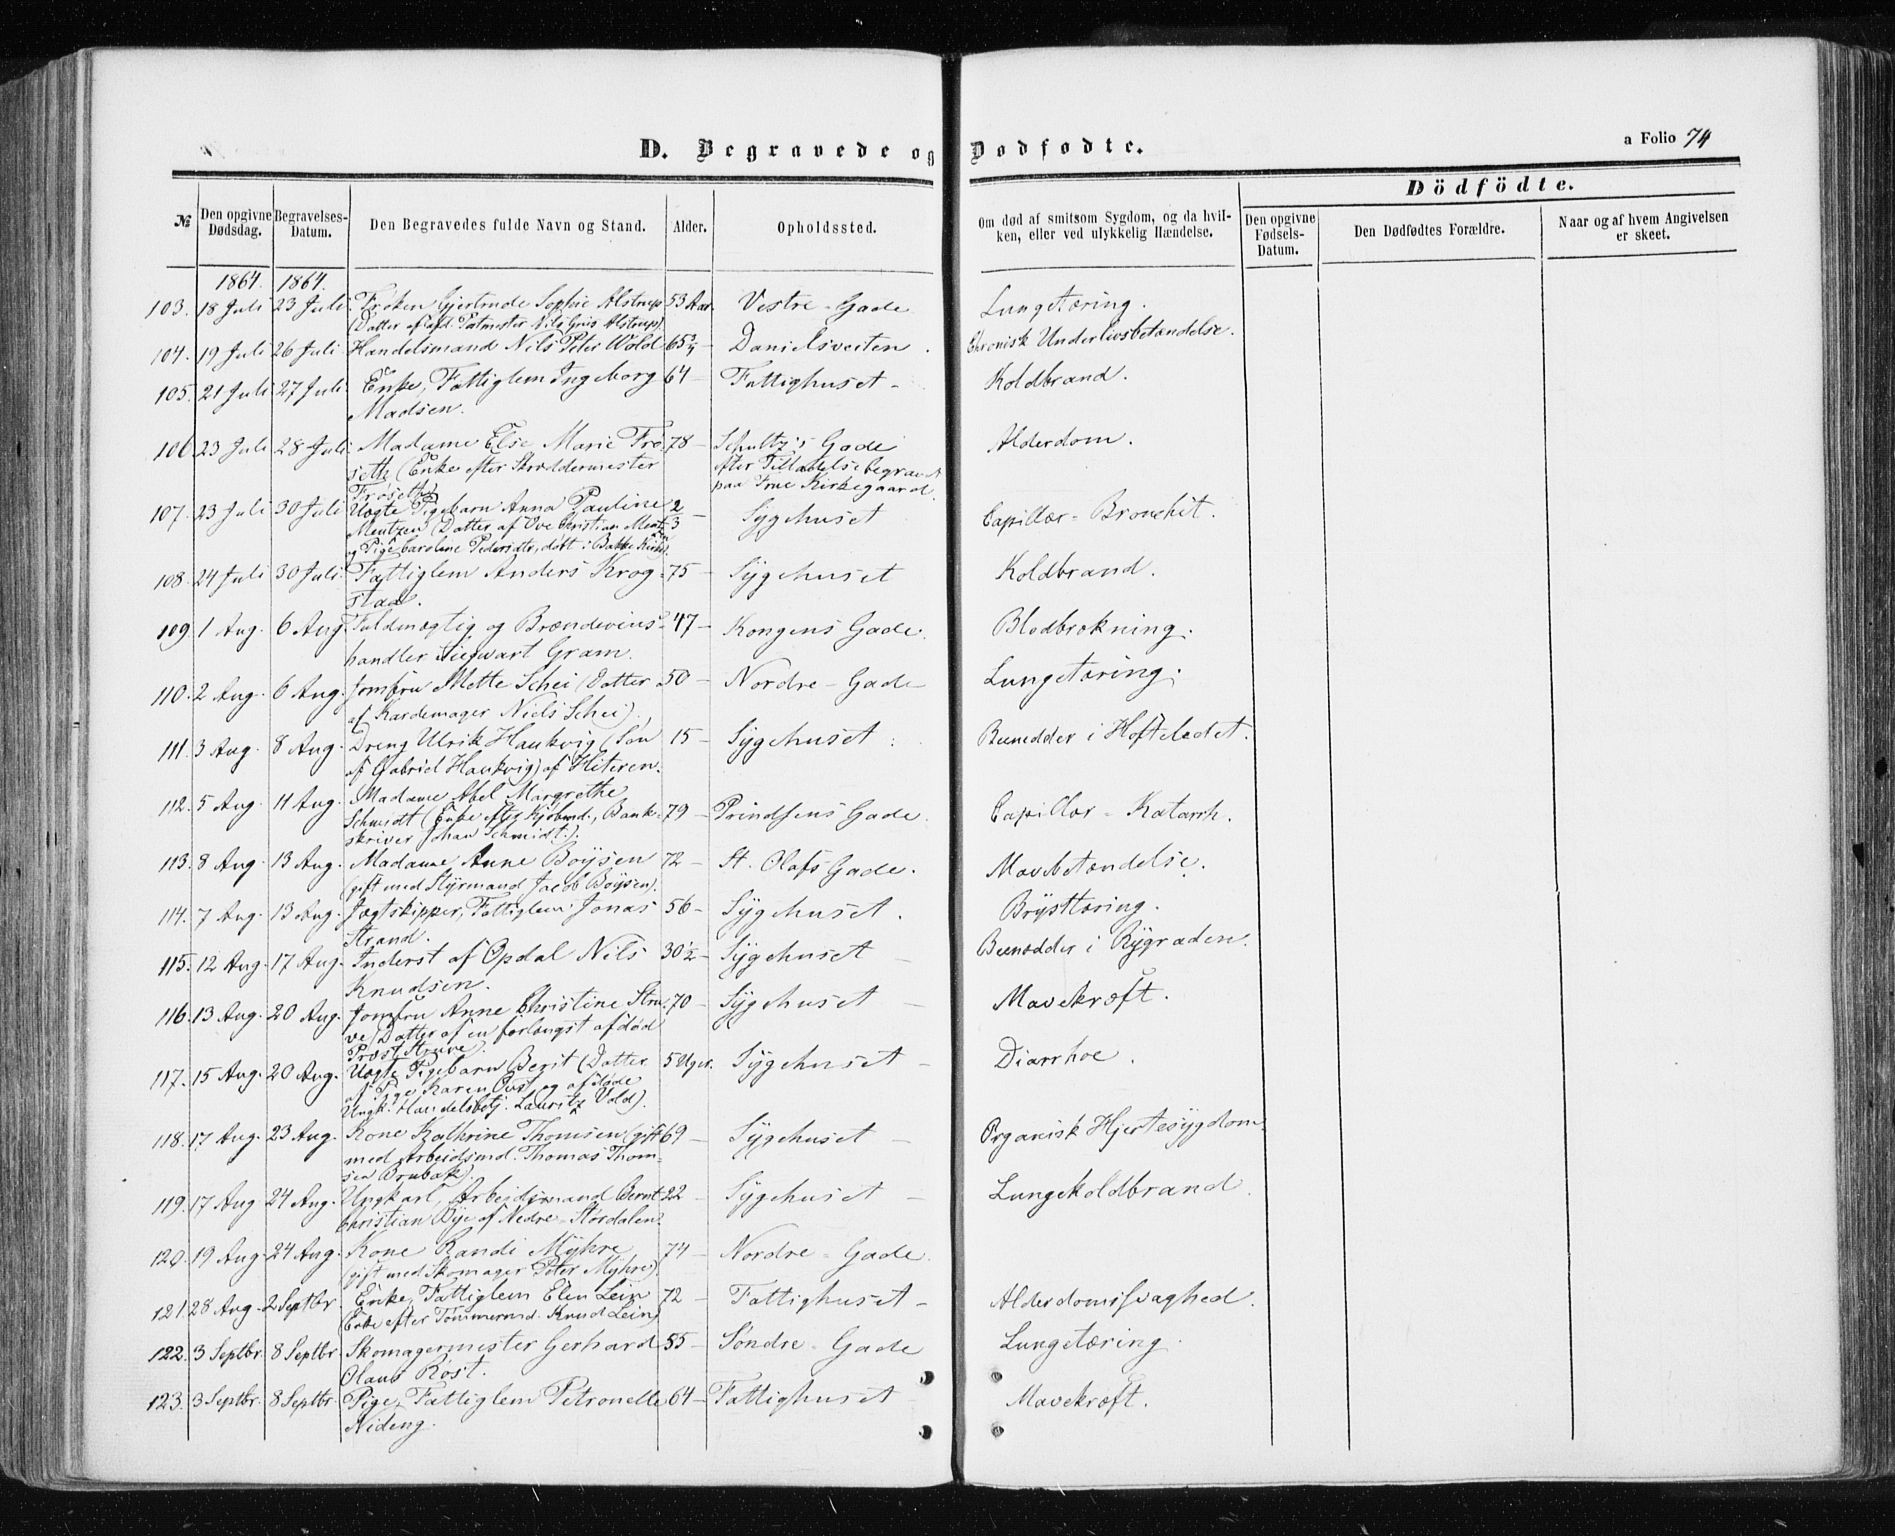 D. Begravede og Dødfødte.
a Folio 74
Dödfödte.
№
Den opgivne Dødsdag.
Begravelses-Datum.
Den Begravedes fulde Navn og Stand.
Alder.
Opholdssted.
Om død af smitsom Sygdom, og da hvil-
ken, eller ved ulykkelig Hændelse.
Den opgivne Fødsels-Datum.
Den Dødfødtes Forældre.
Naar og af hvem Angivelsen er skeet.
1864. 1864.
103. 18 Juli 23 Juli Frøken Gjertrude Sophie Alstrup 53 Aar. Vestre-Gade Lungetæring.
(Datter af afd. Nils Alstrup)
104. 19 Juli 26 Juli Handelsmand Nils Peter Wold 65¾ Danielsveiten. Chronisk Underlivsbetændelse.
105. 21 Juli 27 Juli Enke, Fattiglem Ingeborg 64 — Fattighuset — Koldbrand.
Madsen.
106 23 Juli 28 Juli Madame Else Marie Frø- 78 — Schultz's Gade Alderdom.
seth (Enke efter Skræddermester efter Tilladelse begravet
Frøseth) paa Frue Kirkegaard.
107. 23 Juli 30 Juli Uægte Pigebarn Anna Pauline 2/3 — Sygehuset Capillær-Bronchit.
Mentzen (Datter af Ove Christian Mentzen
og Pige Caroline Pedersdtr, døbt i Bakke Kirke).
108. 24 Juli 30 Juli. Fattiglem Anders Krog- 75 — Sygehuset Koldbrand.
stad.
109. 1 Aug. 6 Aug. Fuldmægtig og Brændeviins- 47 — Kongens Gade. Blodbrækning.
handler Siegwart Gram.
110. 2 Aug. 6 Aug. Jomfru Mette Schei (Datter 50 — Nordre-Gade Lungetæring.
af Kardemager Niels Schei).
111. 3 Aug. 8 Aug. Dreng Ulrik Haukvig (Søn 15 — Sygehuset. Beenedder i Hofteledet.
af Gabriel Haukvig) af Hiteren.
112. 5 Aug. 11 Aug. Madame Abel Margrethe
Schmidt (Enke efter Kjøbmd., Bank- 79 — Prindsens Gade. Capillær-Katarrh.
skriver Johan Schmidt).
113. 8 Aug. 13 Aug. Madame Anne Boysen 72 — St. Olafs Gade. Mavebetændelse.
(gift med Styrmand Jacob Boysen).
114. 7 Aug. 13 Aug. Jægtskipper, Fattiglem Jonas 56 — Sygehuset. Brysttæring.
Strand.
115. 12 Aug. 17 Aug. Inderst af Opdal Nils 30½ — Sygehuset — Beenedder i Rygraden.
Knudsen.
116. 13 Aug. 20 Aug. Jomfru Anne Christine Stru- 70 — Sygehuset — Mavekræft.
ve (Datter af en forlængst afdød
Provst Struve).
117. 15 Aug. 20 Aug. Uægte Pigebarn Berit (Datter 5 Uger. Sygehuset — Diarrhoe.
af Pige Karen Oust og afdøde
Ungk. Handelsbetj. Lauritz Vold).
118. 17 Aug. 23 Aug. Kone Kathrine Thomsen (gift 69 — Sygehuset — Organisk Hjertesygdom.
med Arbeidsmd. Thomas Thom-
sen Brubak).
119. 17 Aug 24 Aug. Ungkarl, Arbeidsmand Bernt 22 — Sygehuset — Lungekoldbrand.
Christian Bye af Nedre-Stordalen.
120. 19 Aug 24 Aug. Kone Randi Myhre 74 — Nordre-Gade.
(gift med Skomager Peter Myhre).
121. 28 Aug. 2 Septbr. Enke, Fattiglem Elen Lein 72 — Fattighuset — Alderdomssvaghed.
(Enke efter Tømmermd. Knud Lein)
122. 3 Septbr. 8 Septbr. Skomagermester Gerhard 55 — Søndre-Gade Lungetæring.
Olaus Röst.
123. 3 Septbr. 8 Septbr. Pige, Fattiglem Petronelle 64 — Fattighuset Mavekræft.
Nideng.